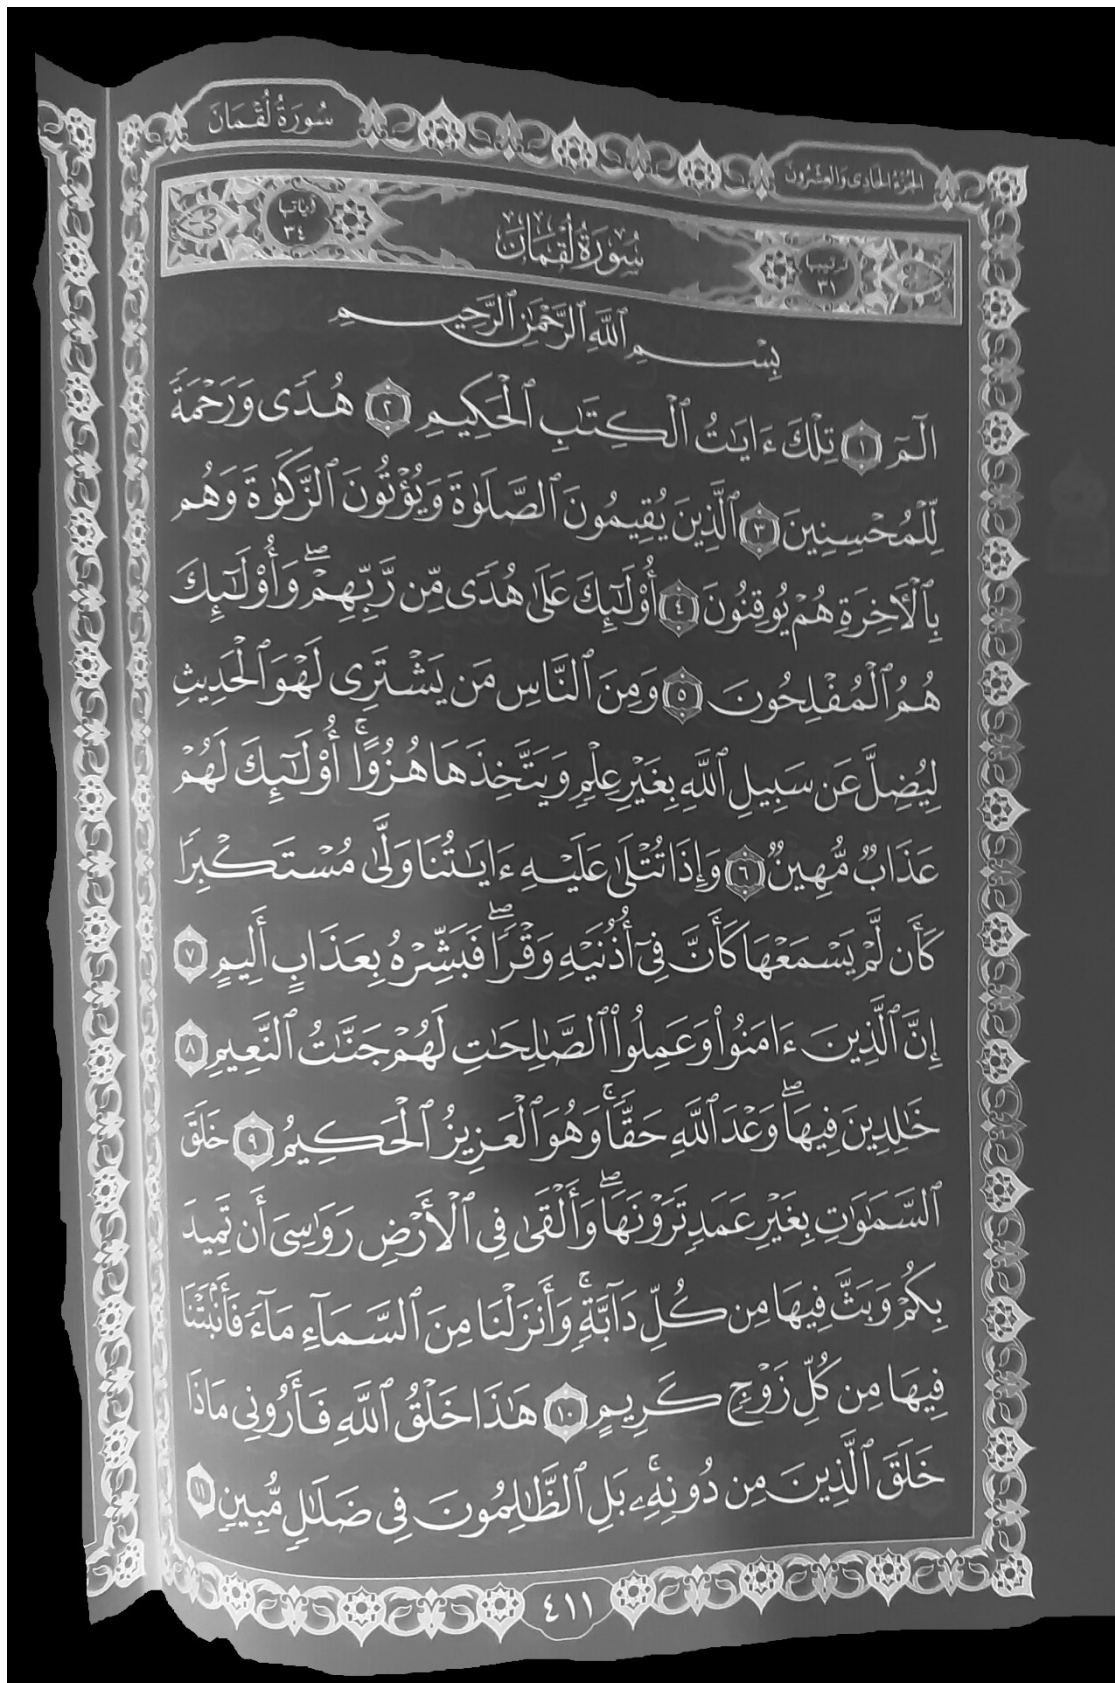 سُورَةُ لُقْمَانَ
الجُزْءُ الحَادِى وَالعِشْرُونَ
ترتيبها ٣١ سُورَةُ لُقْمَانَ آياتها ٣٤
بِسْمِ ٱللَّهِ ٱلرَّحْمَٰنِ ٱلرَّحِيمِ
الٓمٓ ١ تِلْكَ ءَايَٰتُ ٱلْكِتَٰبِ ٱلْحَكِيمِ ٢ هُدًى وَرَحْمَةً
لِّلْمُحْسِنِينَ ٣ ٱلَّذِينَ يُقِيمُونَ ٱلصَّلَوٰةَ وَيُؤْتُونَ ٱلزَّكَوٰةَ وَهُم
بِٱلْأَخِرَةِ هُمْ يُوقِنُونَ ٤ أُوْلَٰٓئِكَ عَلَىٰ هُدًى مِّن رَّبِّهِمْۖ وَأُوْلَٰٓئِكَ
هُمُ ٱلْمُفْلِحُونَ ٥ وَمِنَ ٱلنَّاسِ مَن يَشْتَرِى لَهْوَ ٱلْحَدِيثِ
لِيُضِلَّ عَن سَبِيلِ ٱللَّهِ بِغَيْرِ عِلْمٍ وَيَتَّخِذَهَا هُزُوًاۚ أُوْلَٰٓئِكَ لَهُمْ
عَذَابٌ مُّهِينٌ ٦ وَإِذَا تُتْلَىٰ عَلَيْهِ ءَايَٰتُنَا وَلَّىٰ مُسْتَكْبِرًا
كَأَن لَّمْ يَسْمَعْهَا كَأَنَّ فِىٓ أُذُنَيْهِ وَقْرًاۖ فَبَشِّرْهُ بِعَذَابٍ أَلِيمٍ ٧
إِنَّ ٱلَّذِينَ ءَامَنُوا۟ وَعَمِلُوا۟ ٱلصَّٰلِحَٰتِ لَهُمْ جَنَّٰتُ ٱلنَّعِيمِ ٨
خَٰلِدِينَ فِيهَاۖ وَعْدَ ٱللَّهِ حَقًّاۚ وَهُوَ ٱلْعَزِيزُ ٱلْحَكِيمُ ٩ خَلَقَ
ٱلسَّمَٰوَٰتِ بِغَيْرِ عَمَدٍ تَرَوْنَهَاۖ وَأَلْقَىٰ فِى ٱلْأَرْضِ رَوَٰسِىَ أَن تَمِيدَ
بِكُمْ وَبَثَّ فِيهَا مِن كُلِّ دَآبَّةٍۚ وَأَنزَلْنَا مِنَ ٱلسَّمَآءِ مَآءً فَأَنۢبَتْنَا
فِيهَا مِن كُلِّ زَوْجٍ كَرِيمٍ ١٠ هَٰذَا خَلْقُ ٱللَّهِ فَأَرُونِى مَاذَا
خَلَقَ ٱلَّذِينَ مِن دُونِهِۦۚ بَلِ ٱلظَّٰلِمُونَ فِى ضَلَٰلٍ مُّبِينٍ ١١
٤١١